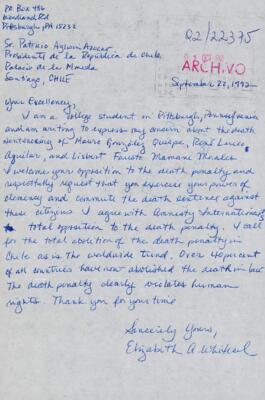 P.O. Box 486
Woodland Rd
Pittsburgh, PA 15232
R2/22375
ARCHIVO
Sr. Patricio Aylwin Azocar
Presidente de la República de Chile
Palacio de la Moneda
Santiago, CHILE
September 22, 1992
Your Excellency,
I am a college student in Pittsburgh, Pennsylvania
and am writing to express my concern about the death
sentencing of Mauro González Quispe, René Lucio
Aguilar, and Lisbert Fausto Mamani Morales
I welcome your opposition to the death penalty and
respectfully request that you exercise your power of
clemency and commute the death sentence against
these citizens. I agree with Amnesty International's
total opposition to the death penalty. I call
for the total abolition of the death penalty in
Chile as is the worldwide trend. Over 40 percent
of all countries have now abolished the death in law.
The death penalty clearly violates human
rights. Thank you for your time
Sincerely Yours,
Elizabeth A.